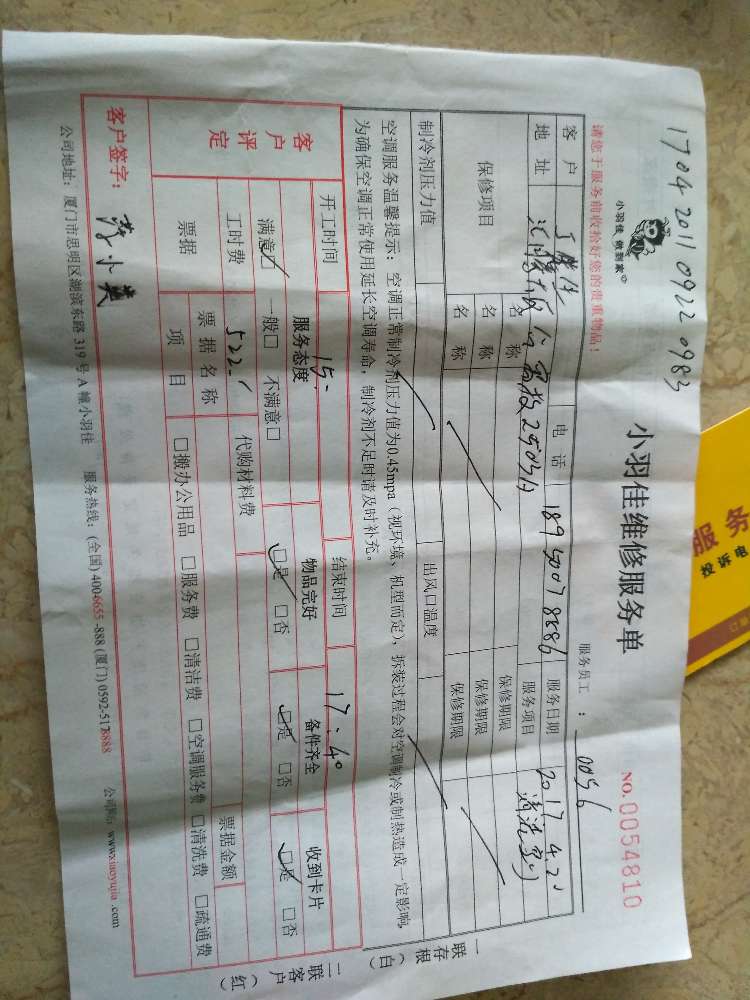 1704 2011 0922 0983
小羽佳 做到家
小羽佳维修服务单
NO.0054810
请您于服务前收拾好您的贵重物品！
服务员工：0056
客户 电话 189 5007 8886 服务日期 2017.4.20
地址 250 服务项目
保修项目 名称 保修期限
名称 保修期限
名称 保修期限
制冷剂压力值 出风口温度
空调服务温馨提示：空调正常制冷剂压力值为0.45mpa（视环境、机型而定），拆装过程会对空调制冷或制热造成一定影响，
为确保空调正常使用延长空调寿命，制冷剂不足时请及时补充。
开工时间 15: 结束时间 17:40
客户评定 服务态度 物品完好 备件齐全 收到卡片
满意☑ 一般□ 不满意□ ☑是 □否 ☑是 □否 ☑是 □否
工时费 522 代购材料费
票据 票据名称 票据金额
项目 □搬办公用品 □服务费 □清洁费 □空调服务费 □清洗费 □疏通费
客户签字：
公司地址：厦门市思明区湖滨东路319号A幢小羽佳 服务热线：(全国)400-6655-888 (厦门)0592-5178888 公司网：www.xiaoyujia.com
一联存根（白） 二联客户（红）
服务
投诉电